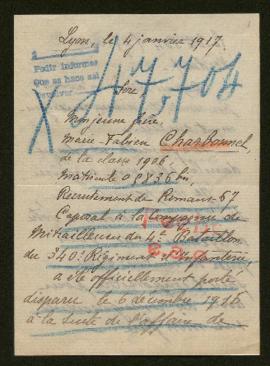 Lyon, le 4 janvier 1917.
Pedir informes
que se hace sai
47,704
Sire
Mon jeune frère,
Marie-Fabien Charbonnel
de la classe 1906,
Matricule 09836 bis,
Recrutement de Romans-57
Caporal à la Compagnie de
Mitrailleuses du 4e Bataillon
du 340e Régiment d'Infanterie,
a été officiellement porté
disparu le 6 décembre 1916
à la suite de l'affaire de